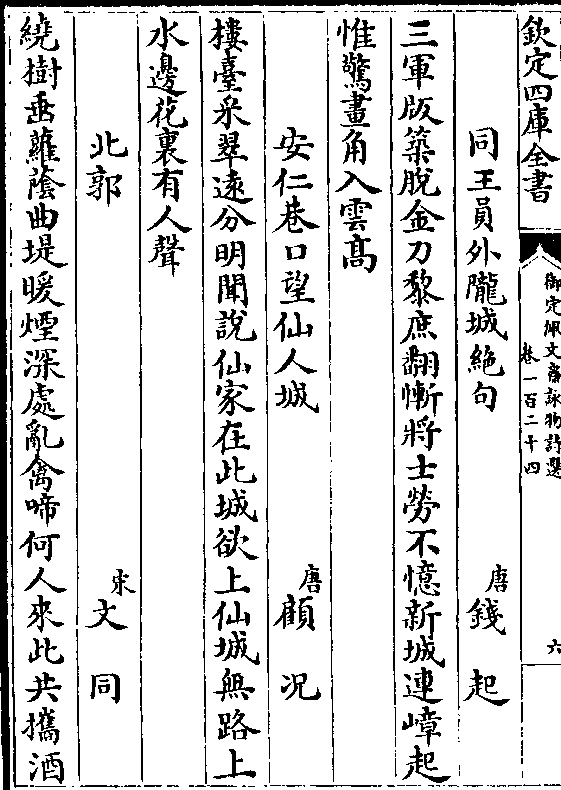 欽定四庫全書
御定佩文齋詠物詩選
卷一百二十四
六
同王員外隴城絶句
唐錢起
三軍版築脫金刀黎庶翻慚將士勞不憶新城連嶂起
惟驚畫角入雲高
安仁巷口望仙人城
唐顧况
樓臺采翠逺分明聞說仙家在此城欲上仙城無路上
水邊花裏有人聲
北郭
宋文同
繞樹垂蘿蔭曲堤暖煙深處亂禽啼何人來此共攜酒